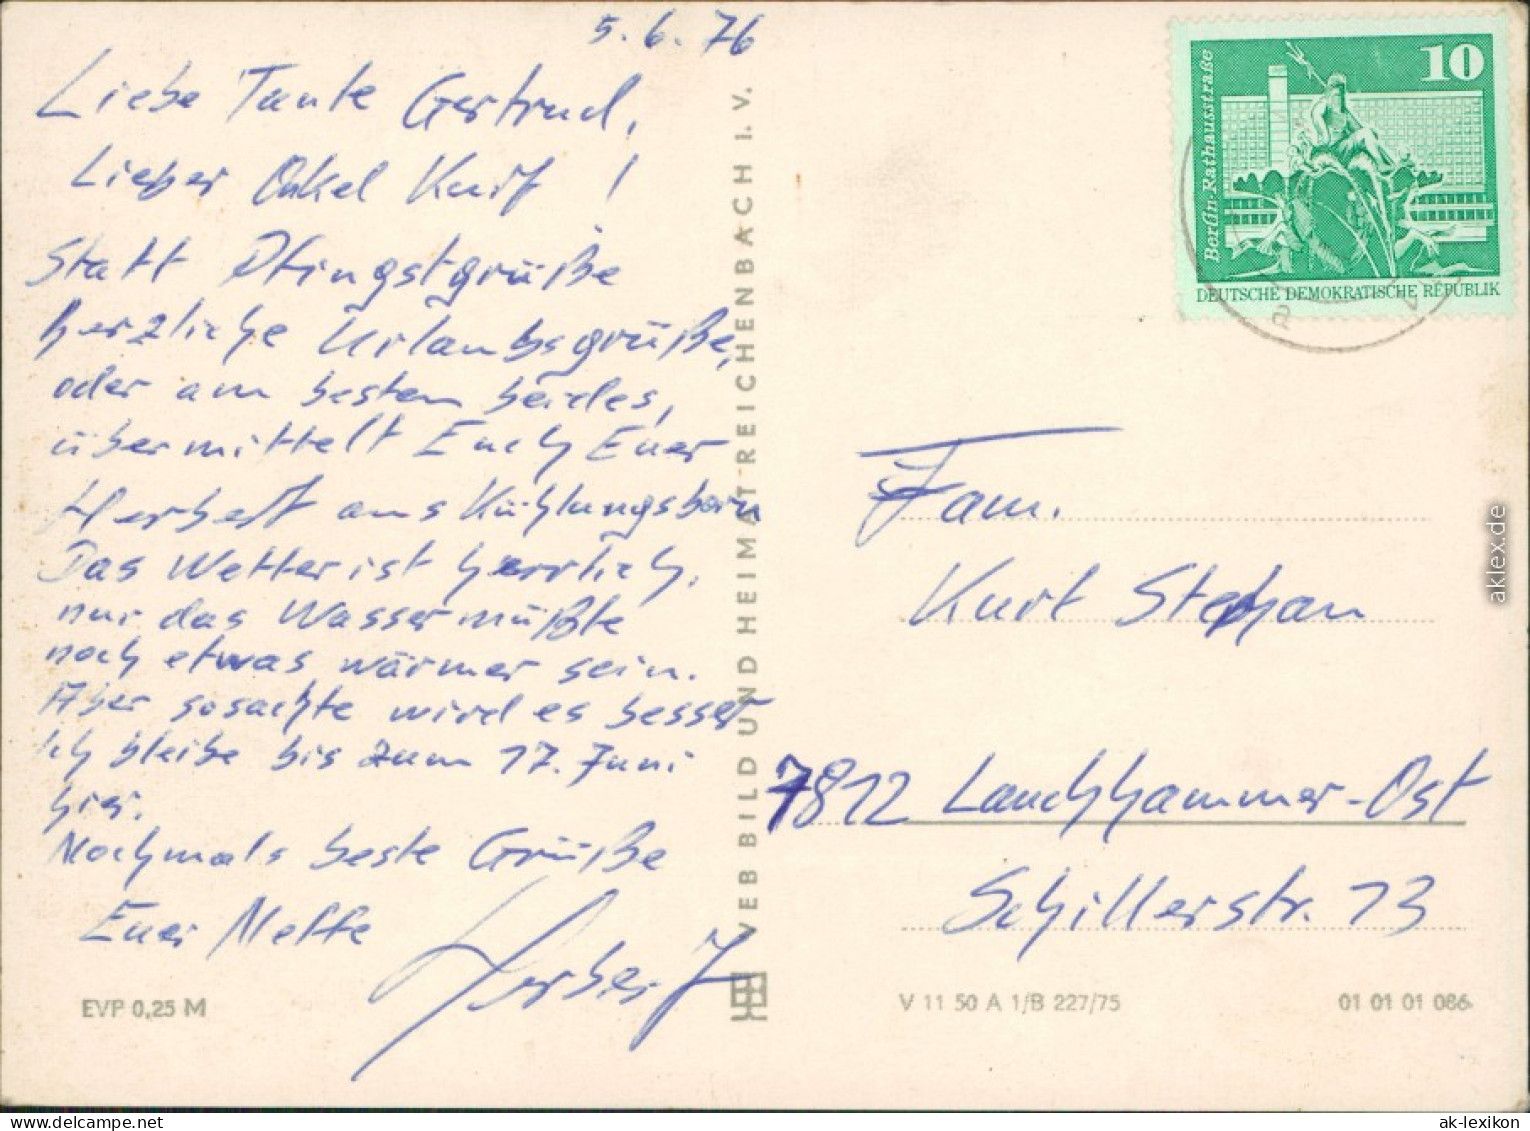 5.6.76
Liebe Tante Gertrud,
Lieber Onkel Kurt !
Statt Pfingstgrüße
herzliche Urlaubsgrüße,
oder am besten beides,
übermittelt Euch Euer
Herbert aus Kühlungsborn
Das Wetter ist herrlich,
nur das Wasser müßte
noch etwas wärmer sein.
Aber sosachte wird es besser
Ich bleibe bis zum 17. Juni
hier.
Nochmals beste Grüße
Euer Neffe
Herbert
EVP 0,25 M
VEB BILD UND HEIMAT REICHENBACH I. V.
10
Berlin-Rathausstraße
DEUTSCHE DEMOKRATISCHE REPUBLIK
a
Fam.
Kurt Stephan
7812 Lauchhammer-Ost
Schillerstr. 13
V 11 50 A 1/B 227/75
01 01 01 086
aklex.de
ak-lexikon